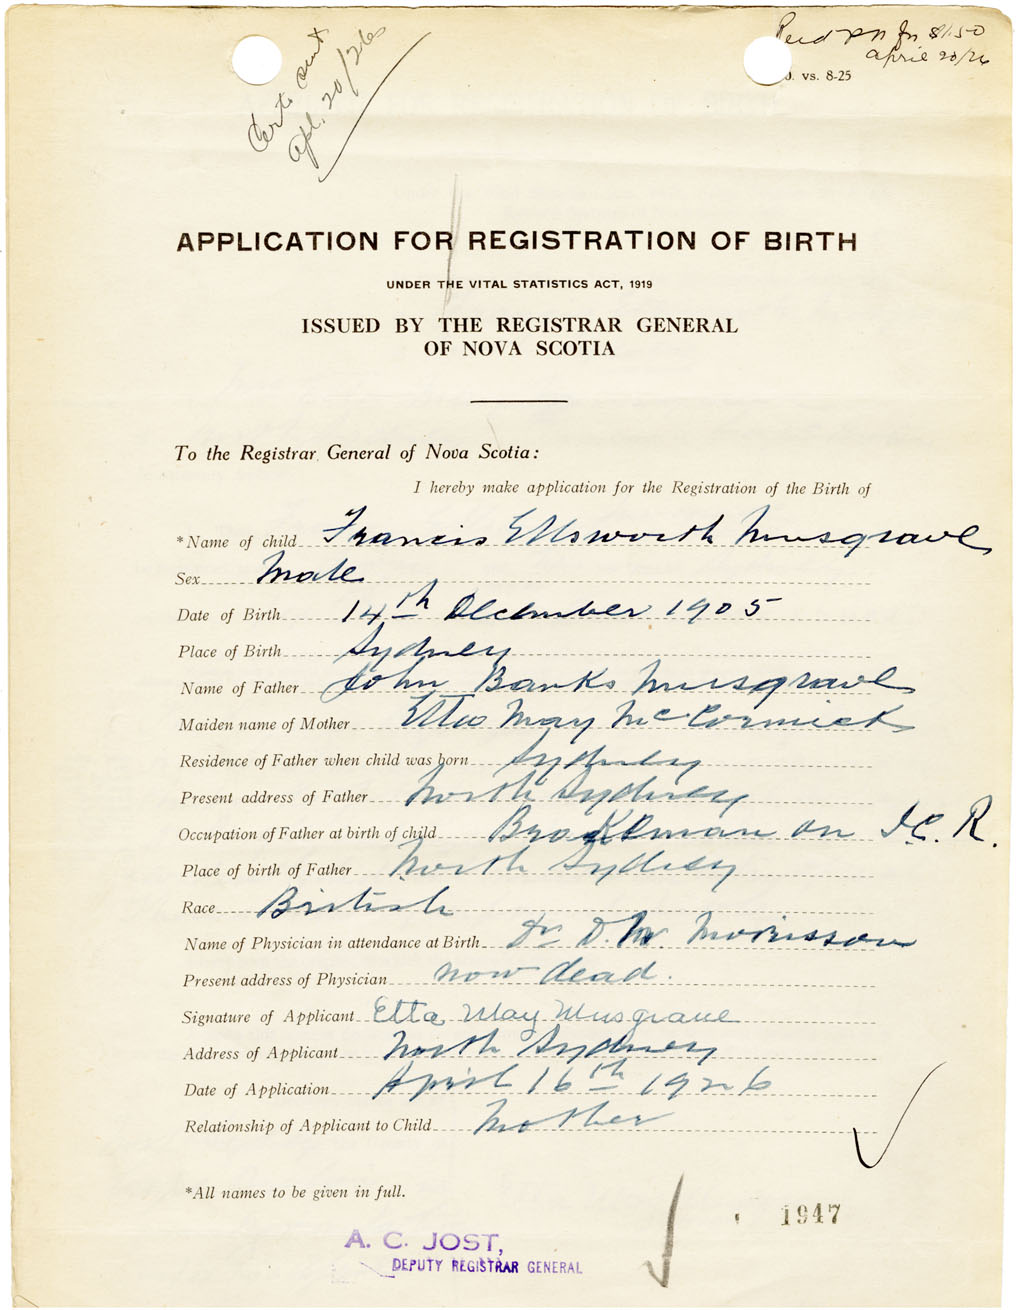 Certs sent
Apl. 20/26
Recd P.N for $1.50
April 20/26
vs. 8-25
APPLICATION FOR REGISTRATION OF BIRTH
UNDER THE VITAL STATISTICS ACT, 1919
ISSUED BY THE REGISTRAR GENERAL
OF NOVA SCOTIA
To the Registrar General of Nova Scotia:
I hereby make application for the Registration of the Birth of
*Name of child Francis Ellsworth Musgrave
Sex Male
Date of Birth 14th December 1905
Place of Birth Sydney
Name of Father John Banks Musgrave
Maiden name of Mother Etta May McCormick
Residence of Father when child was born Sydney
Present address of Father North Sydney
Occupation of Father at birth of child Brakeman on I.C.R.
Place of birth of Father North Sydney
Race British
Name of Physician in attendance at Birth Dr D. M. Morisson
Present address of Physician now dead.
Signature of Applicant Etta May Musgrave
Address of Applicant North Sydney
Date of Application April 16th 1926
Relationship of Applicant to Child Mother
*All names to be given in full.
1947
A. C. JOST,
DEPUTY REGISTRAR GENERAL